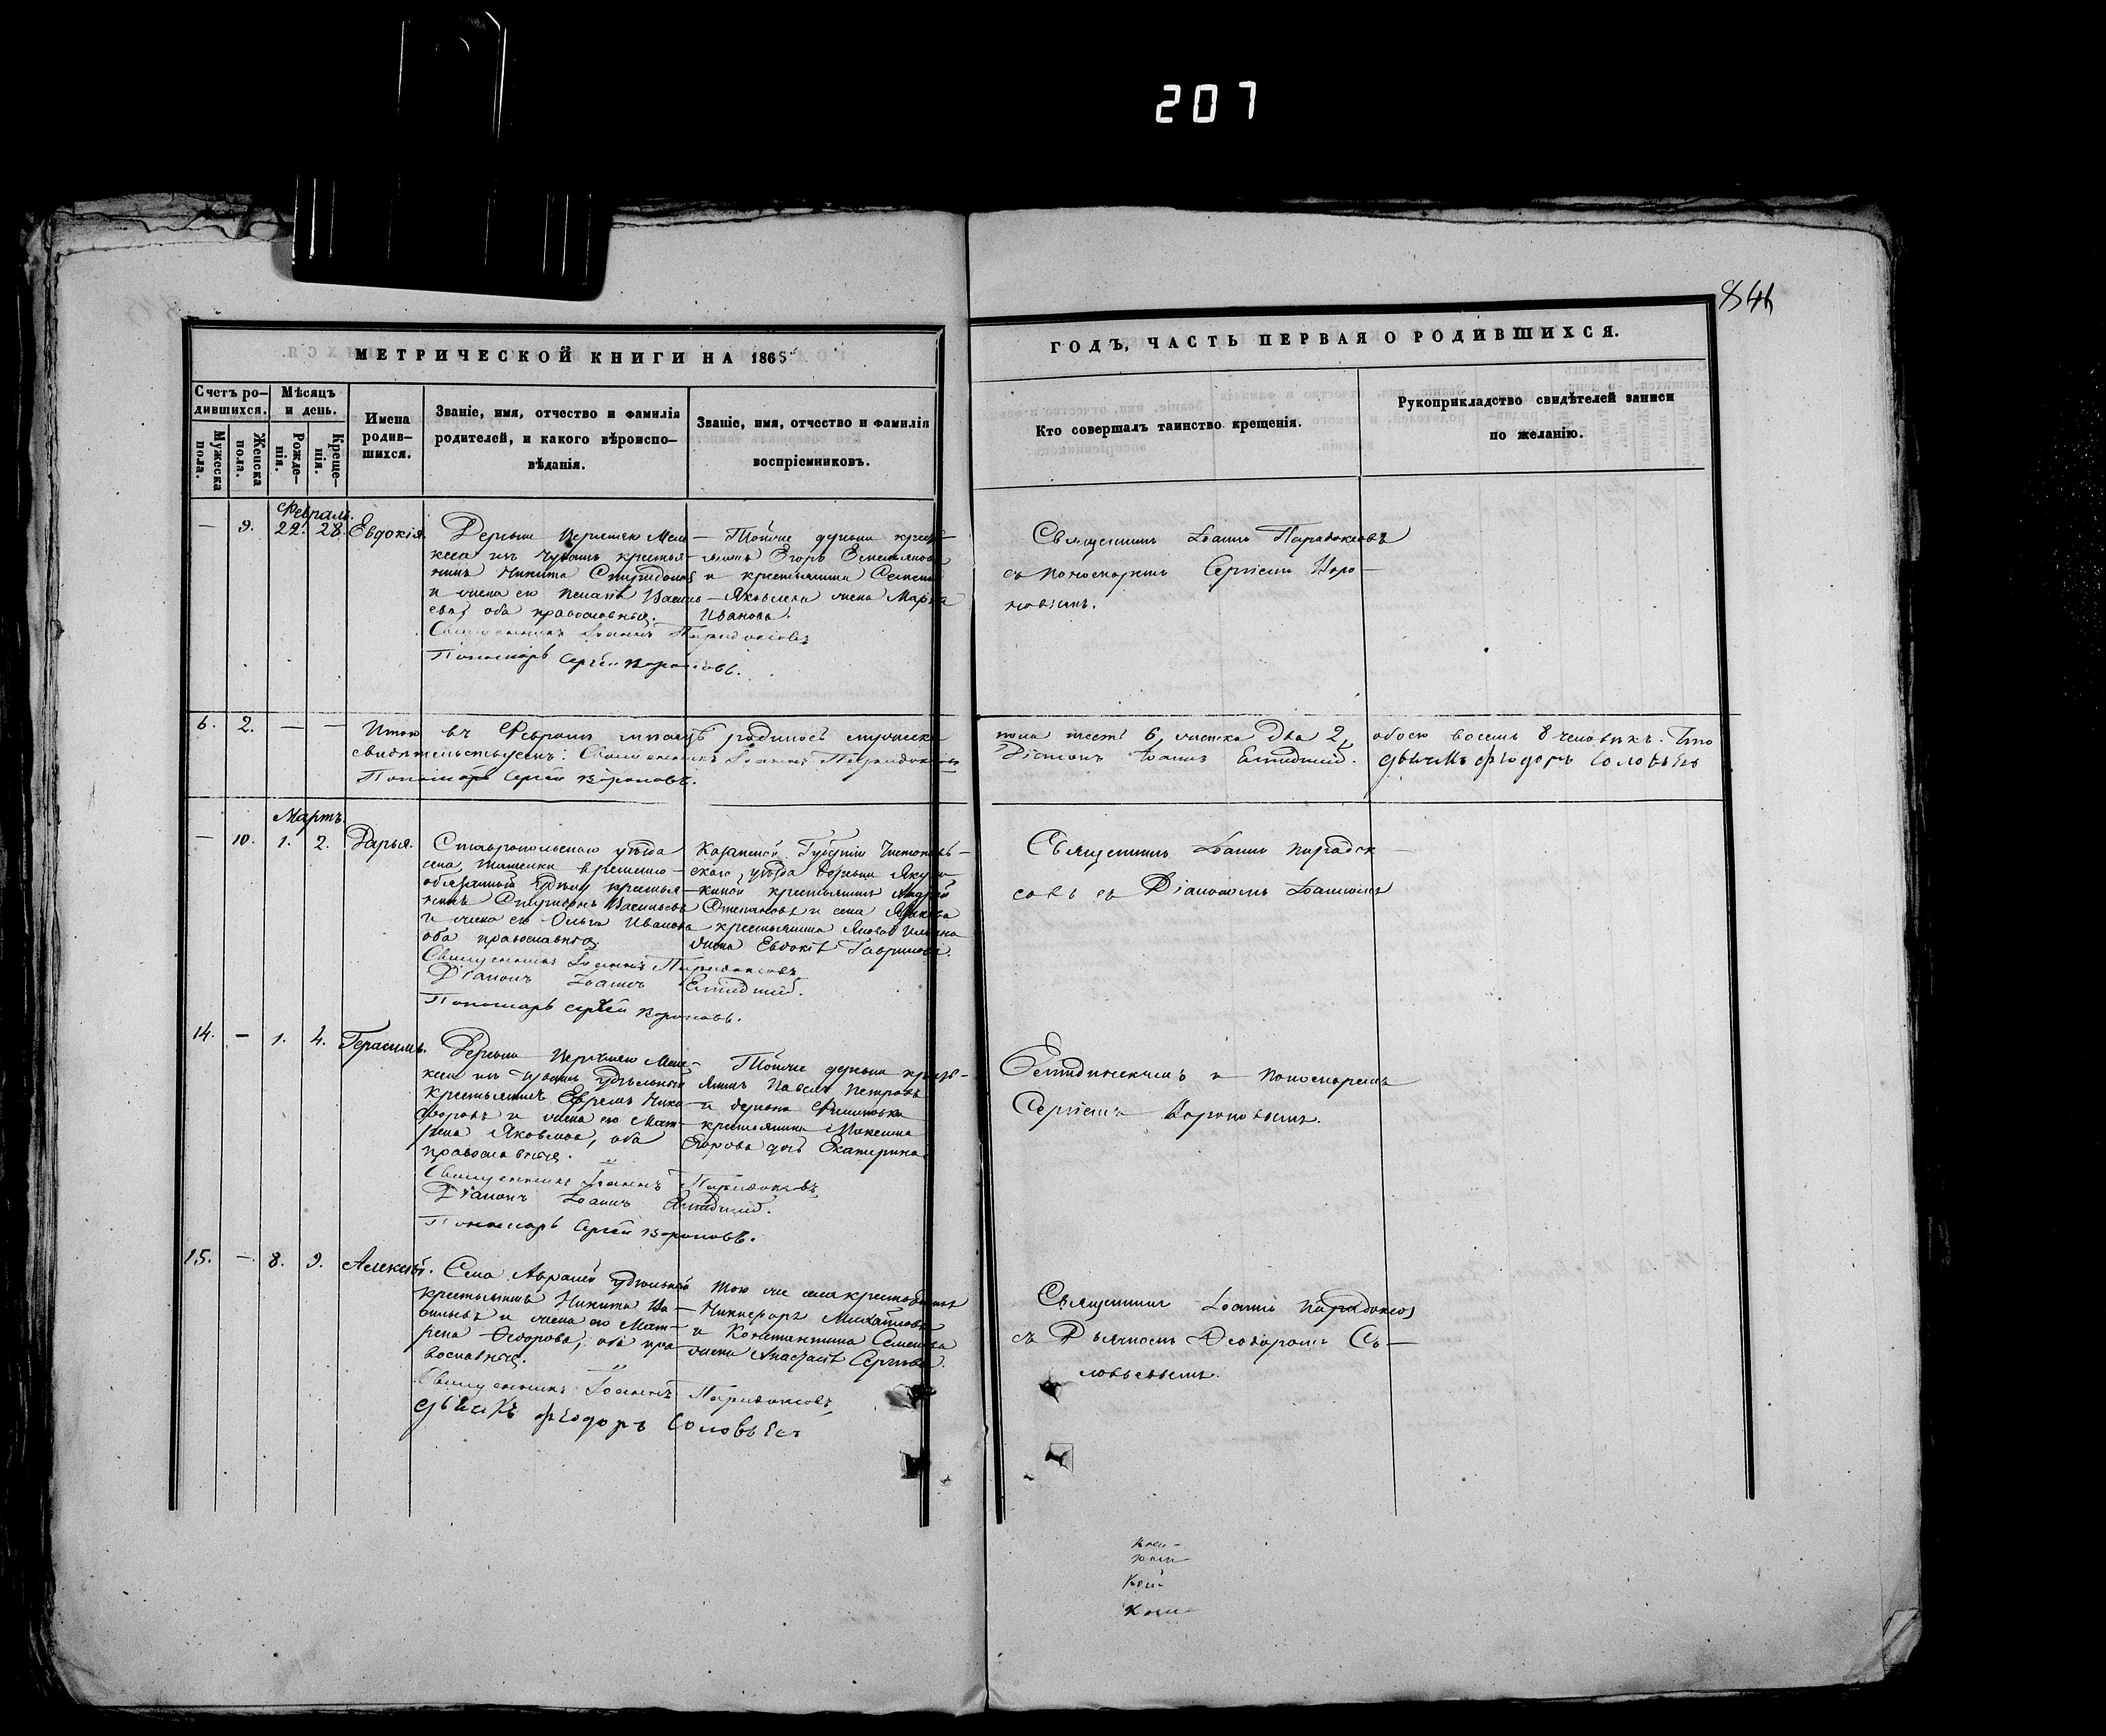 207
846
МЕТРИЧЕСКОЙ КНИГИ НА 1865
ГОДЪ, ЧАСТЬ ПЕРВАЯ О РОДИВШИХСЯ.
Счетъ ро-
дившихся.
Мѣсяцъ
и день.
Мужеска
пола.
Женска
пола.
Рожде-
нія.
Креще-
нія.
Имена
родив-
шихся.
Званіе, имя, отчество и фамилія
родителей, и какого вѣроиспо-
вѣданія.
Званіе, имя, отчество и фамилія
воспріемниковъ.
Кто совершалъ таинство крещенія.
Рукоприкладство свидѣтелей записи
по желанію.
Февраль.
— 9. 22. 28. Евдокія.
Деревни Верхнею Меле-
кеса изъ Чувашъ крестья-
нинъ Никита Спиридоновъ
и жена его Василь-
ева, оба православные.
Священникъ Іоаннъ Парадоксовъ
Пономарь Сергѣй Вороновъ.
Тойже деревни кресть-
янинъ Егоръ Емельяновъ
и крестьянина Семена
Яковлева жена Марья
Иванова.
Священникъ Іоаннъ Парадоксовъ
съ пономаремъ Сергіемъ Воро-
новымъ.
6. 2. — — Итого въ Февралѣ мѣсяцѣ родилось мужеска
свидѣтельствуемъ: Священникъ Іоаннъ Парадоксовъ
Пономарь Сергѣй Вороновъ.
пола шесть 6, женска два 2, обоего восемь 8 человѣкъ. Что
Діаконъ Іоаннъ дьячекъ Феодоръ Соловьевъ
Мартъ.
— 10. 1. 2. Дарья.
Ставропольскаго уѣзда
села временно-
обязанный крестья-
нинъ Спиридонъ Васильевъ
и жена его Ольга Иванова
оба православные.
Священникъ Іоаннъ Парадоксовъ
Діаконъ Іоаннъ
Пономарь Сергѣй Вороновъ.
Казанской Губерніи Чистополь-
скаго уѣзда деревни Якуш-
киной крестьянинъ Андрей
Степановъ и села
крестьянина Ильина
жена Евдокія Гаврилова.
Священникъ Іоаннъ Парадок-
совъ съ Діакономъ Іоанномъ
14. — 1. 4. Герасимъ.
Деревни Верхнею Меле-
кеса изъ Чувашъ удѣльный
крестьянинъ Ефремъ Ники-
форовъ и жена его Мат-
рена Яковлева, оба
православные.
Священникъ Іоаннъ Парадоксовъ
Діаконъ Іоаннъ
Пономарь Сергѣй Вороновъ.
Тойже деревни кресть-
янинъ Павелъ Петровъ
и деревни Филиповки
крестьянина Максима
Егорова дочь Екатерина
и пономаремъ
Сергіемъ Вороновымъ.
15. — 8. 9. Алексѣй.
Села Авралей удѣльный
крестьянинъ Никита Ва-
сильевъ и жена его Мат-
рена Ѳедорова, оба пра-
вославные.
Священникъ Іоаннъ Парадоксовъ
дьячекъ Феодоръ Соловьевъ
Того же села крестьянинъ
Никифоръ Михайловъ
и Константина Семенова
жена Анастасія Сергѣева.
Священникъ Іоаннъ Парадоксовъ
съ Дьячкомъ Ѳеодоромъ Со-
ловьевымъ.